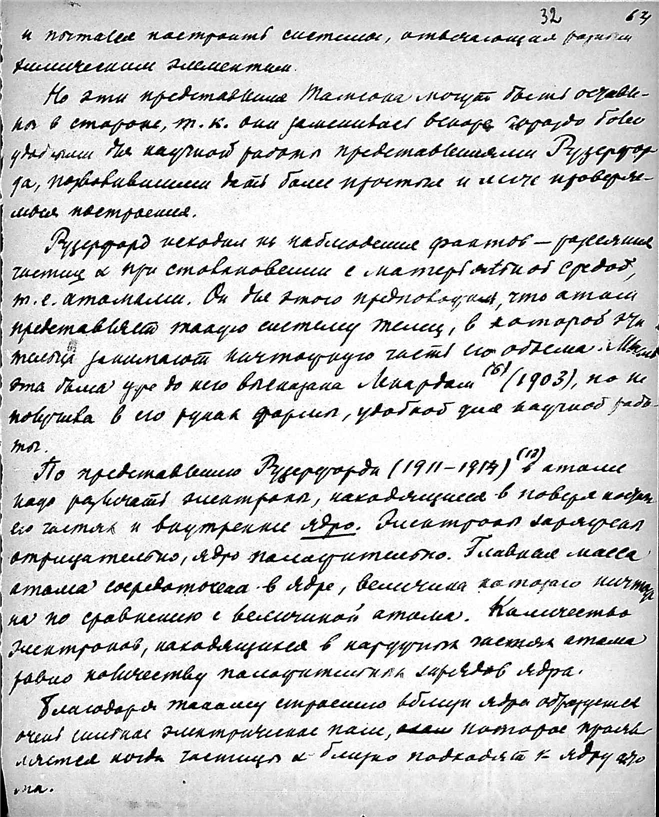 32 63
и пытался построить системы, отвечающия разным
химическим элементам.
Но эти представления Томсона могут быть оставле-
ны в стороне, т. к. они заменились вскоре гораздо более
удобными для научной работы представлениями Рузерфор-
да, позволившими дать более простые и легче проверяе-
мые построения.
Рузерфорд исходил из наблюдения фактов – рассеяния
частиц α при столкновении с материальной средой,
т. е. атомами. Он для этого предположил, что атом
представляет такую систему телец, в которой эти
тельца занимают ничтожную часть его объема. Мысль
эта была уже до него высказана Ленардом (1903), но не
получила в его руках формы, удобной для научной рабо-
ты.
По представлению Рузерфорда (1911–1914) в атоме
надо различать электроны, находящиеся в поверхностных
его частях и внутреннее ядро. Электроны заряжены
отрицательно, ядро положительно. Главная масса
атома сосредоточена в ядре, величина которого ничтож-
на по сравнению с величиной атома. Количество
электронов, находящихся в наружных частях атома
равно количеству положительных зарядов ядра.
Благодаря такому строению вблизи ядра образуется
очень сильное электрическое поле, которое прояв-
ляется когда частицы α близко подходят к ядру ато-
ма.